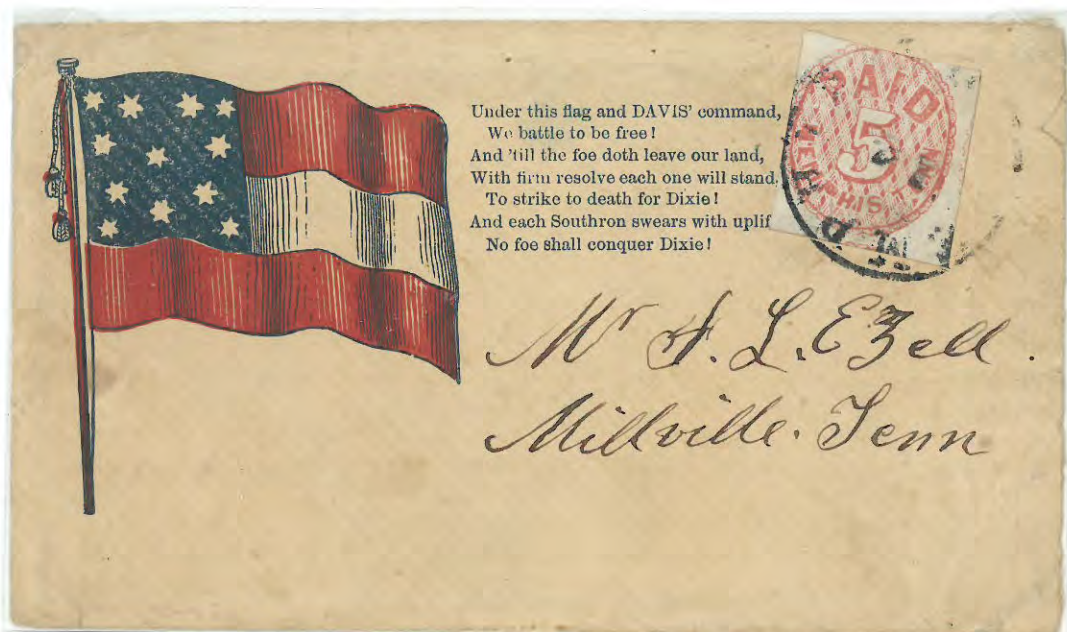 Under this flag and DAVIS' command,
We battle to be free!
And 'till the foe doth leave our land,
With firm resolve each one will stand.
To strike to death for Dixie!
And each Southron swears with uplif
No foe shall conquer Dixie!
PAID
5
MEMPHIS, TENN.
Mr A. L. Ezell.
Millville. Tenn